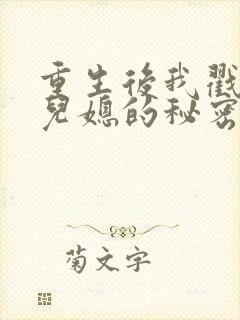 重生後我戳
兒媳的秘密
菊文字